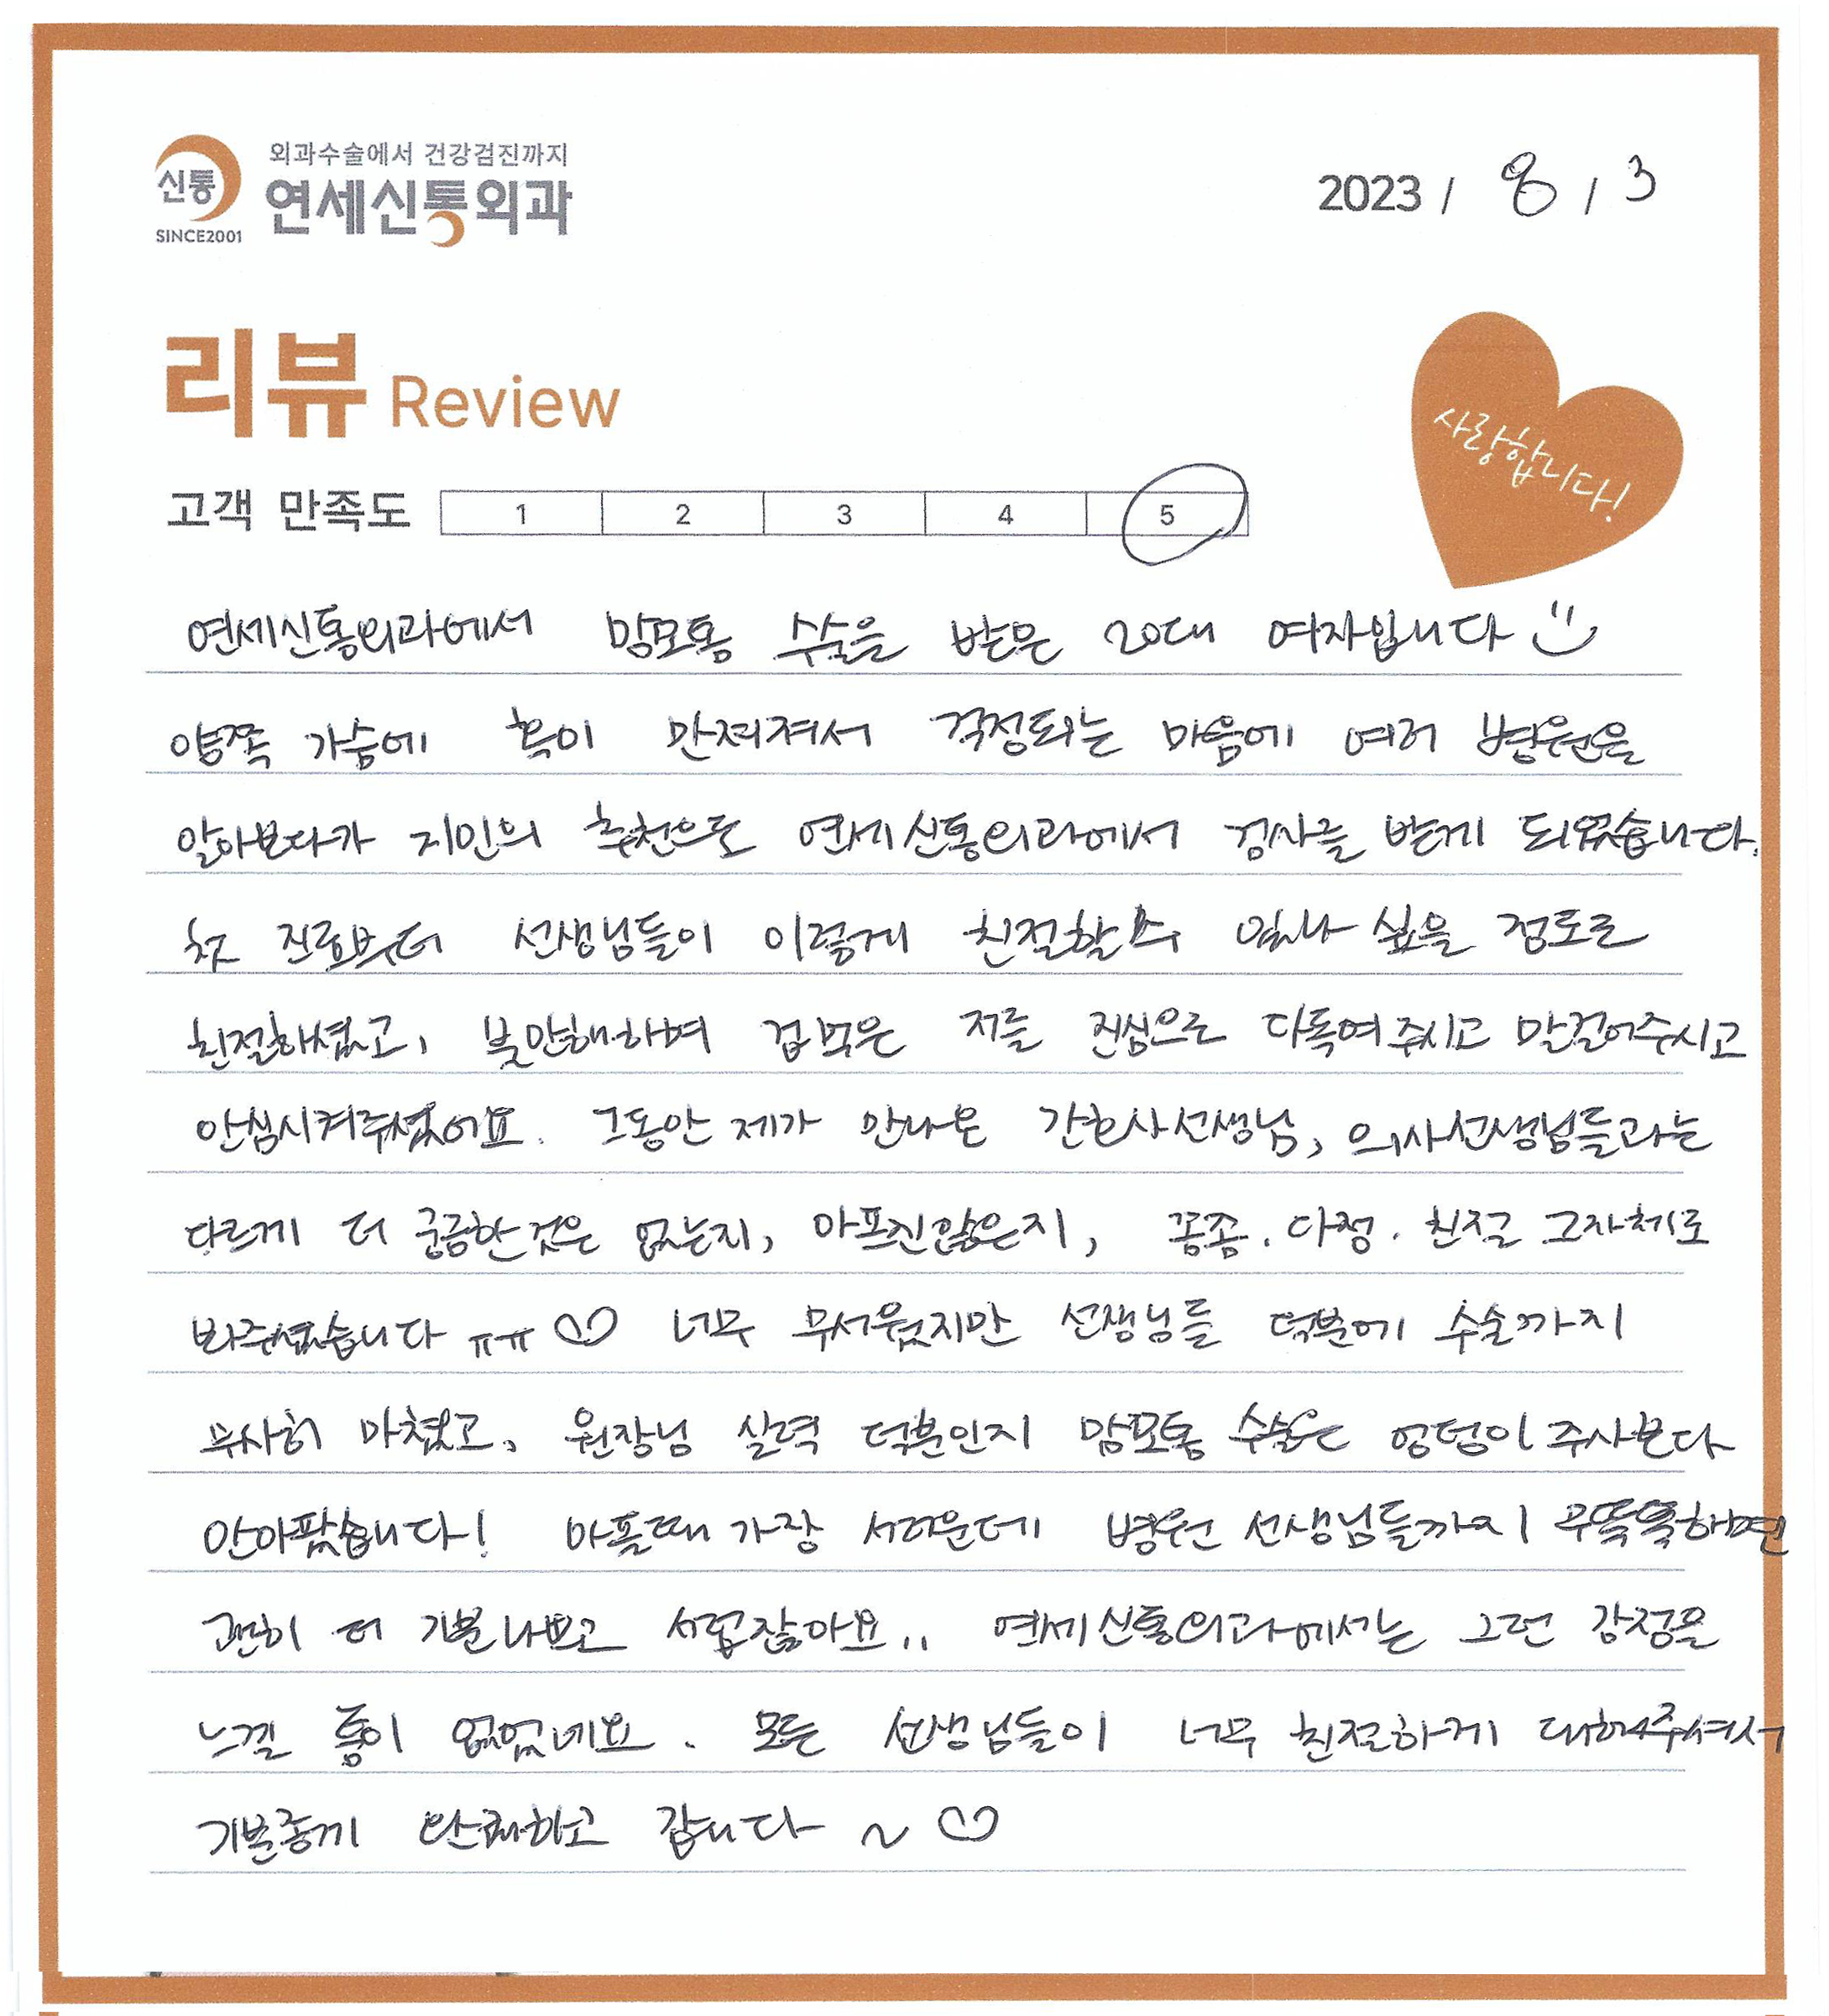 외과수술에서 건강검진까지
신통 연세신통외과
SINCE2001
2023 / 8 / 3
리뷰 Review
사랑합니다!
고객 만족도 1 2 3 4 5
연세신통외과에서 맘모톰 수술을 받은 20대 여자입니다
양쪽 가슴에 혹이 만져져서 걱정되는 마음에 여러 병원을
알아보다가 지인의 추천으로 연세신통외과에서 검사를 받게 되었습니다.
첫 진료부터 선생님들이 이렇게 친절할 수 있나 싶을 정도로
친절하셨고, 불안해하며 겁먹은 저를 진심으로 다독여주시고 말걸어주시고
안심시켜주셨어요. 그동안 제가 만나온 간호사선생님, 의사선생님들과는
다르게 더 궁금한것은 없는지, 아프진않은지, 꼼꼼. 다정. 친절 그자체로
봐주셨습니다 ㅠㅠ ♡ 너무 무서웠지만 선생님들 덕분에 수술까지
무사히 마쳤고, 원장님 실력 덕분인지 맘모톰 수술은 엉덩이 주사보다
안아팠습니다! 아플때 가장 서러운데 병원 선생님들까지 무뚝뚝하면
괜히 더 기분 나쁘고 서럽잖아요.. 연세신통외과에서는 그런 감정을
느낄 틈이 없었네요. 모든 선생님들이 너무 친절하게 대해주셔서
기분좋게 완쾌하고 갑니다 ~ ♡